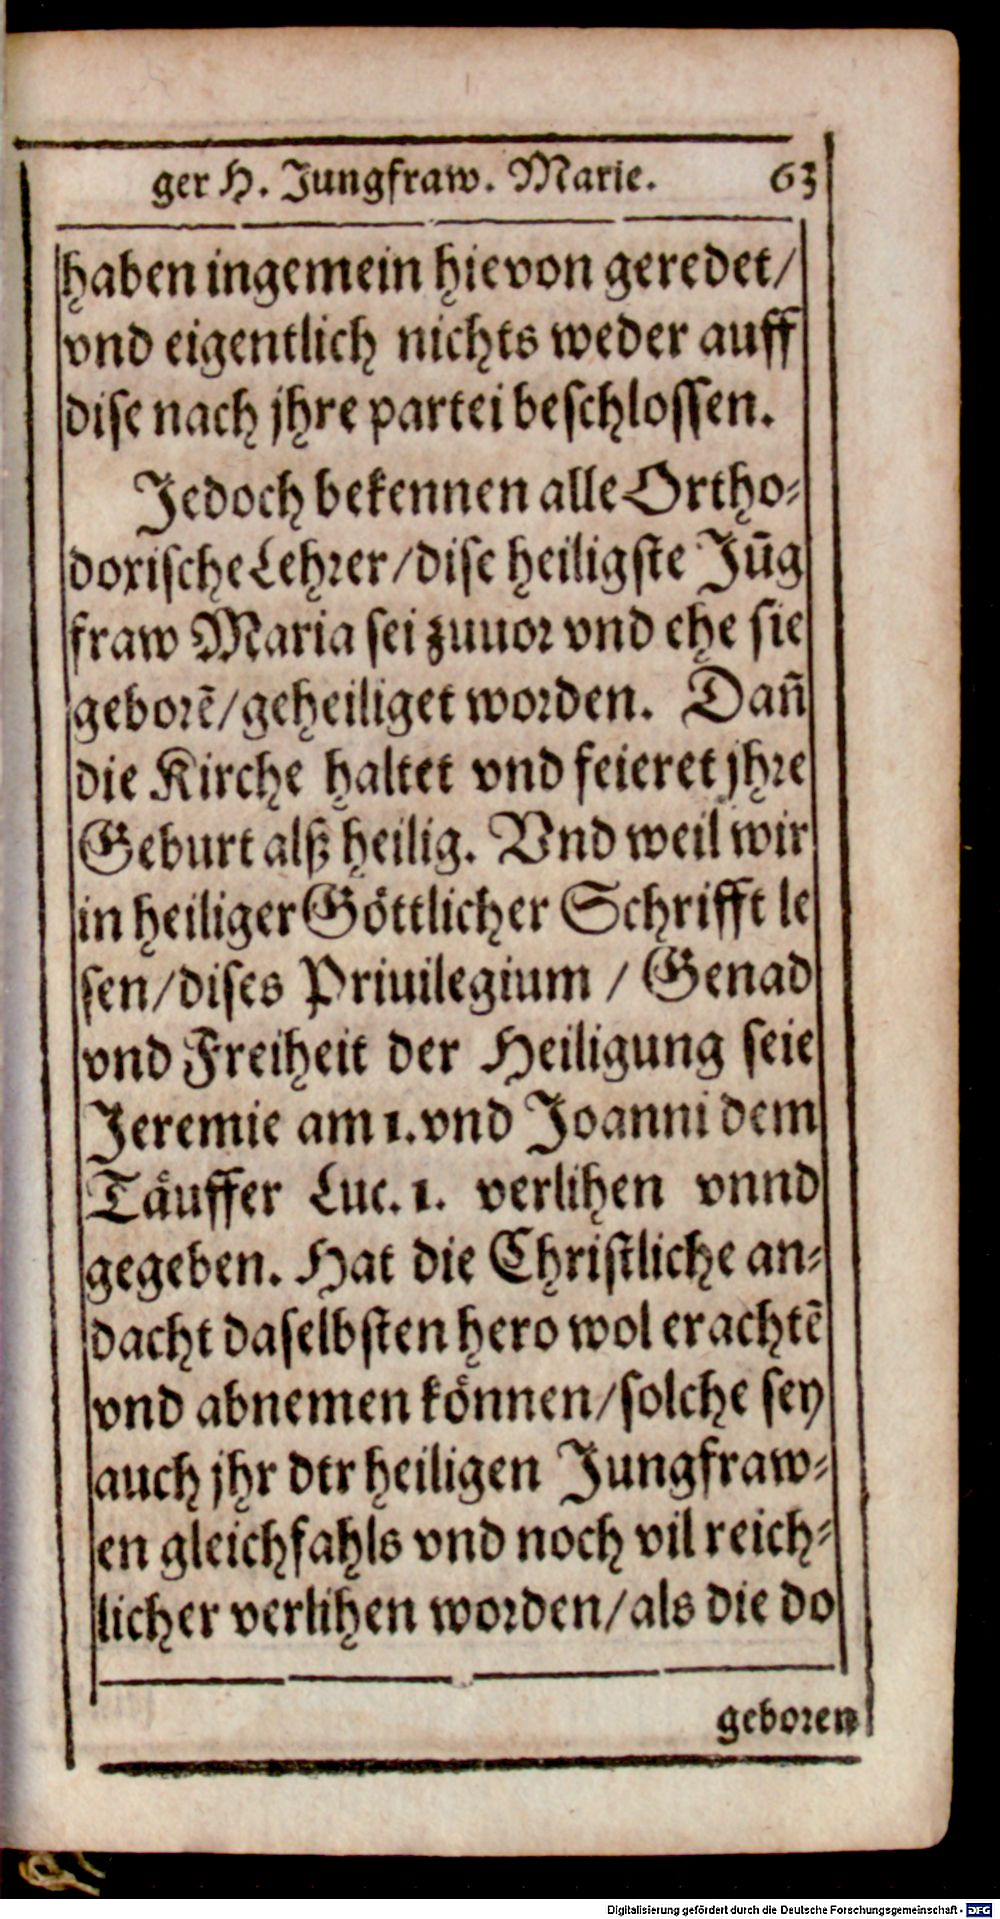 ger H. Jungfraw. Marie. 63
haben ingemein hievon geredet/
vnd eigentlich nichts weder auff
dise nach jhre partei beschlossen.
Jedoch bekennen alle Ortho-
doxische Lehrer/dise heiligste Jūg
fraw Maria sei zuuor vnd ehe sie
geborē/geheiliget worden. Dañ
die Kirche haltet vnd feieret jhre
Geburt alß heilig. Vnd weil wir
in heiliger Göttlicher Schrifft le
sen/dises Priuilegium / Genad
vnd Freiheit der Heiligung seie
Jeremie am 1. vnd Joanni dem
Täuffer Luc. 1. verlihen vnnd
gegeben. Hat die Christliche an-
dacht daselbsten hero wol erachtē
vnd abnemen können/solche sey
auch jhr dtr heiligen Jungfraw-
en gleichfahls vnd noch vil reich-
licher verlihen worden/als die do
geboren
Digitalisierung gefördert durch die Deutsche Forschungsgemeinschaft - DFG